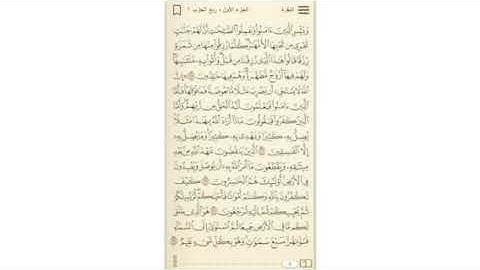 البقرة
الجزء الأول ، ربع الحزب ١
وَبَشِّرِ ٱلَّذِينَ ءَامَنُوا۟ وَعَمِلُوا۟ ٱلصَّٰلِحَٰتِ أَنَّ لَهُمْ جَنَّٰتٍ
تَجْرِى مِن تَحْتِهَا ٱلْأَنْهَٰرُ كُلَّمَا رُزِقُوا۟ مِنْهَا مِن ثَمَرَةٍ
رِّزْقًا قَالُوا۟ هَٰذَا ٱلَّذِى رُزِقْنَا مِن قَبْلُ وَأُتُوا۟ بِهِۦ مُتَشَٰبِهًا
وَلَهُمْ فِيهَآ أَزْوَٰجٌ مُّطَهَّرَةٌ وَهُمْ فِيهَا خَٰلِدُونَ ٢٥ ۞ إِنَّ
ٱللَّهَ لَا يَسْتَحْىِۦٓ أَن يَضْرِبَ مَثَلًا مَّا بَعُوضَةً فَمَا فَوْقَهَا فَأَمَّا
ٱلَّذِينَ ءَامَنُوا۟ فَيَعْلَمُونَ أَنَّهُ ٱلْحَقُّ مِن رَّبِّهِمْ وَأَمَّا
ٱلَّذِينَ كَفَرُوا۟ فَيَقُولُونَ مَاذَآ أَرَادَ ٱللَّهُ بِهَٰذَا مَثَلًا
يُضِلُّ بِهِۦ كَثِيرًا وَيَهْدِى بِهِۦ كَثِيرًا وَمَا يُضِلُّ بِهِۦٓ
إِلَّا ٱلْفَٰسِقِينَ ٢٦ ٱلَّذِينَ يَنقُضُونَ عَهْدَ ٱللَّهِ مِنۢ بَعْدِ
مِيثَٰقِهِۦ وَيَقْطَعُونَ مَآ أَمَرَ ٱللَّهُ بِهِۦٓ أَن يُوصَلَ وَيُفْسِدُونَ
فِى ٱلْأَرْضِ أُو۟لَٰٓئِكَ هُمُ ٱلْخَٰسِرُونَ ٢٧ كَيْفَ
تَكْفُرُونَ بِٱللَّهِ وَكُنتُمْ أَمْوَٰتًا فَأَحْيَٰكُمْ ثُمَّ يُمِيتُكُمْ
ثُمَّ يُحْيِيكُمْ ثُمَّ إِلَيْهِ تُرْجَعُونَ ٢٨ هُوَ ٱلَّذِى خَلَقَ
لَكُم مَّا فِى ٱلْأَرْضِ جَمِيعًا ثُمَّ ٱسْتَوَىٰٓ إِلَى ٱلسَّمَآءِ
فَسَوَّىٰهُنَّ سَبْعَ سَمَٰوَٰتٍ وَهُوَ بِكُلِّ شَىْءٍ عَلِيمٌ ٢٩